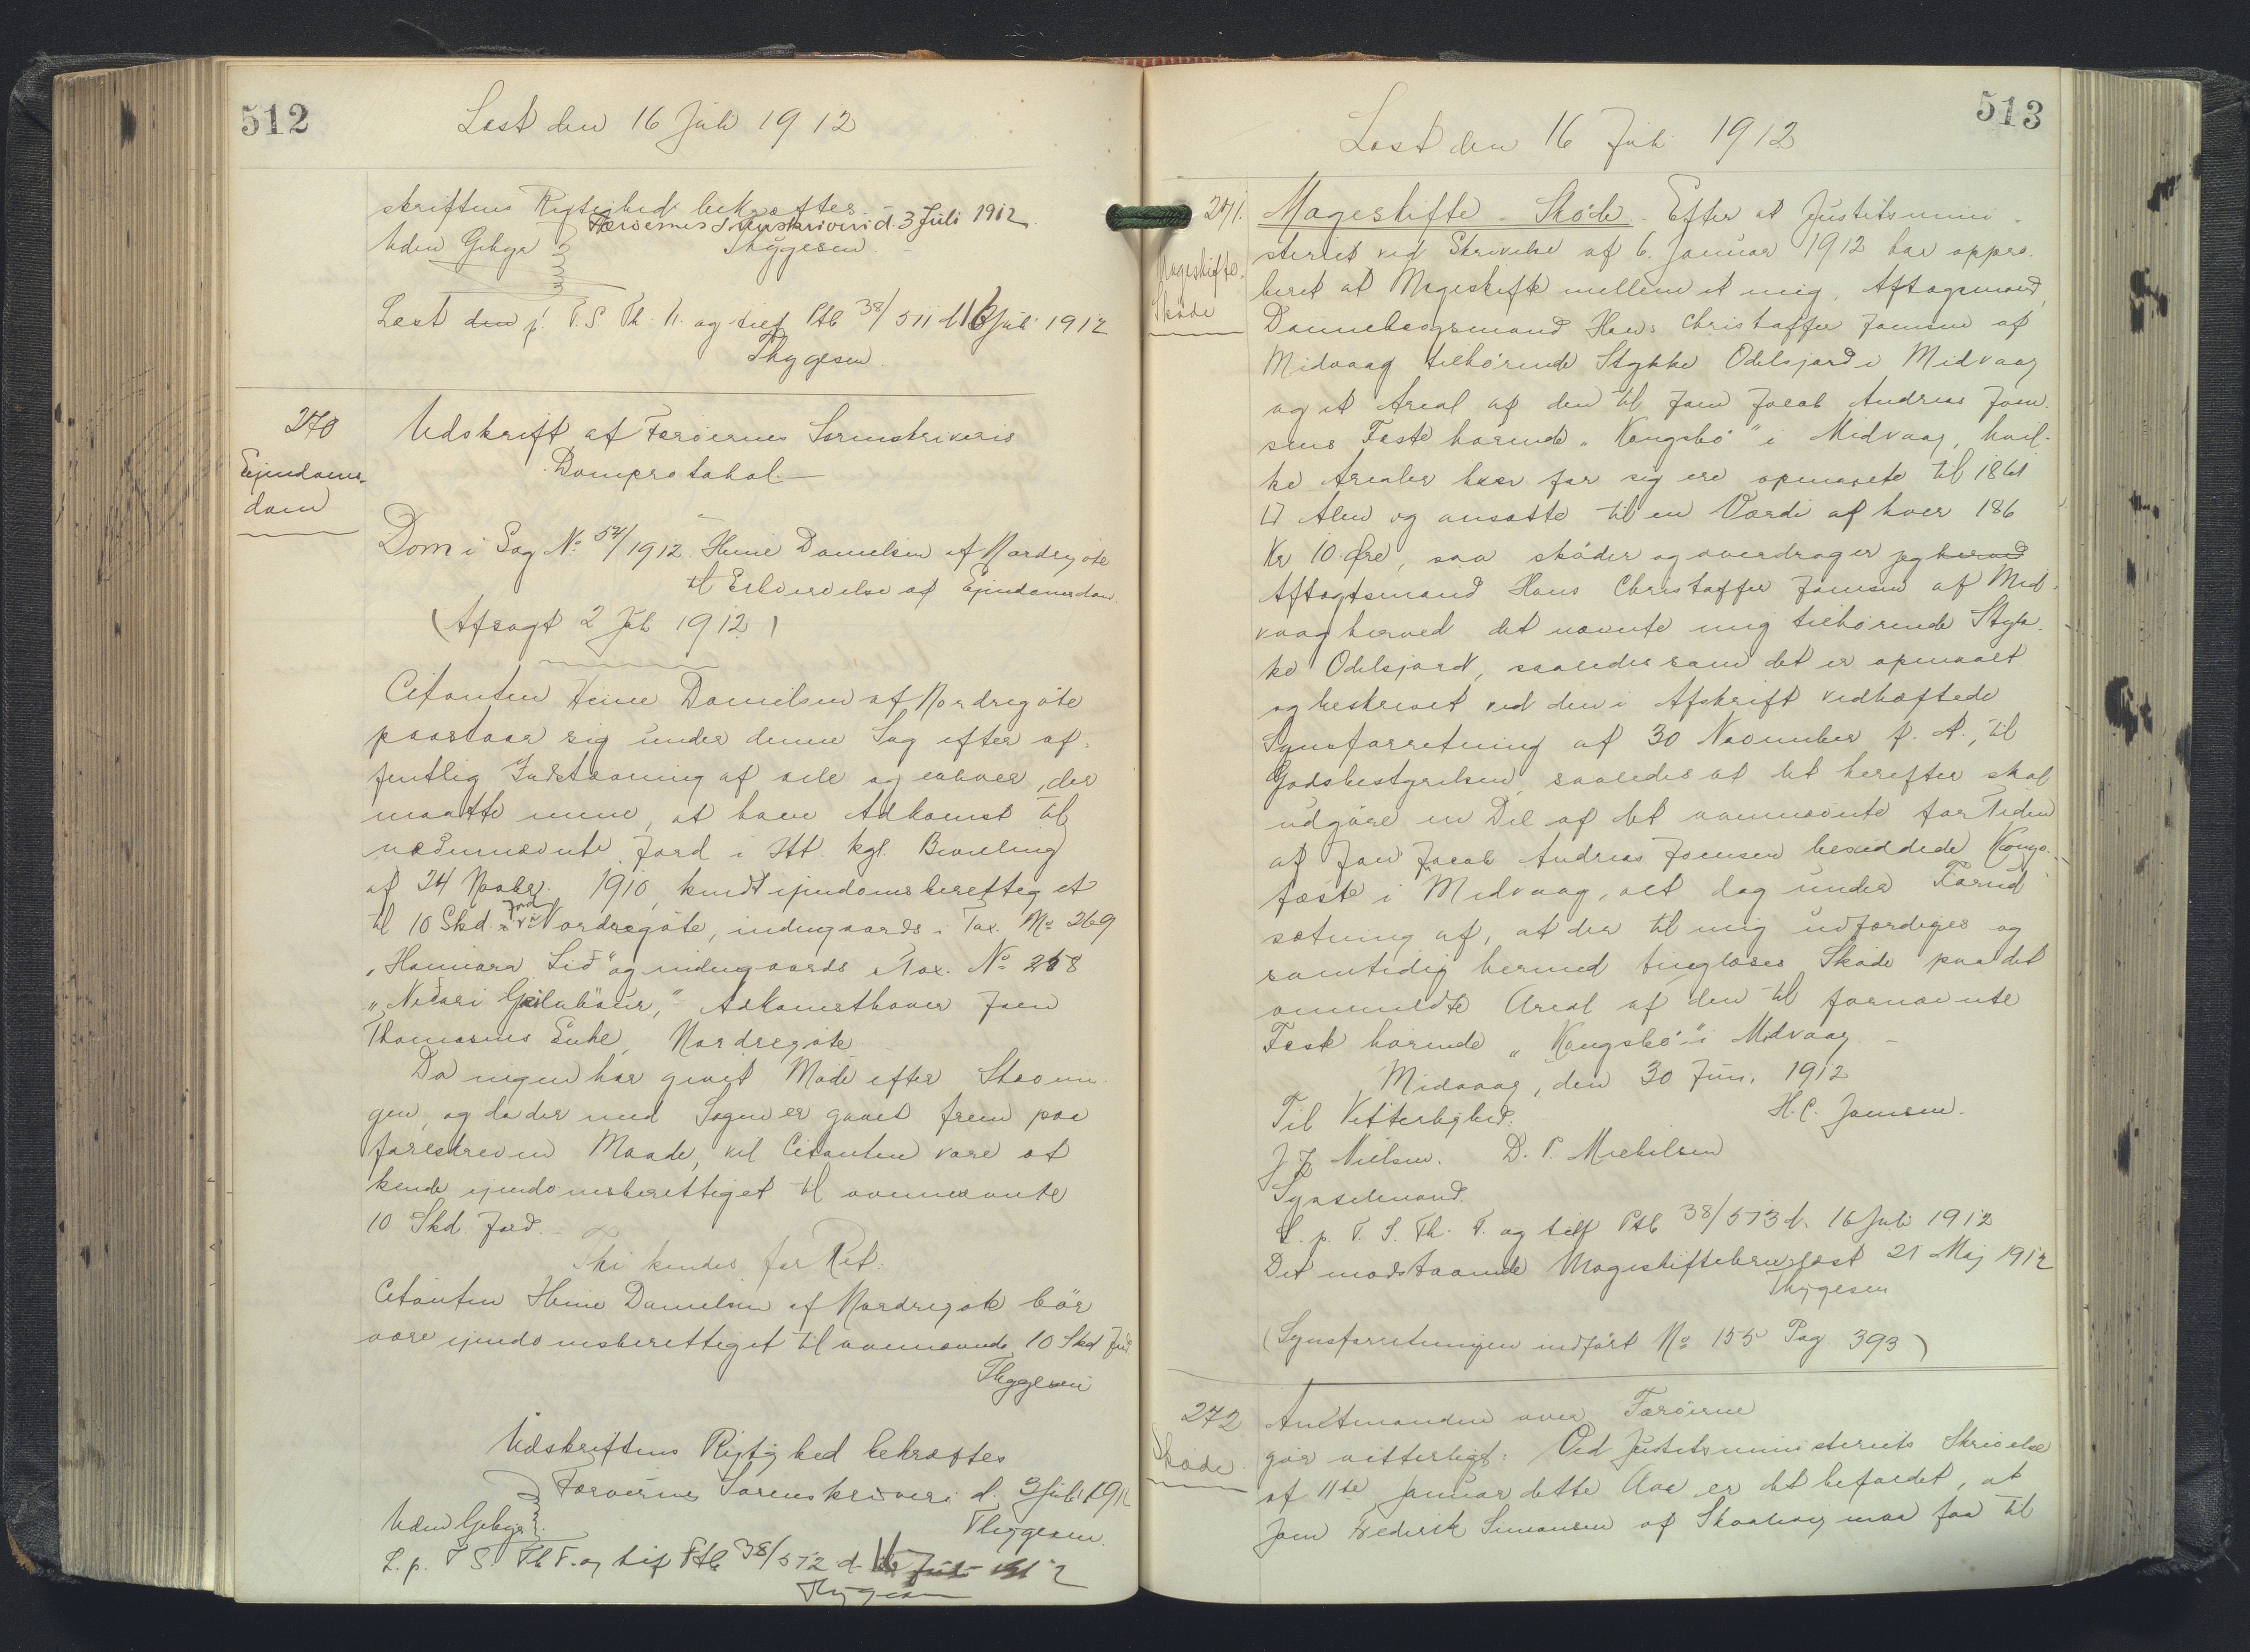 512
Læst den 16 Juli 1912
skriftens Rigtighed bekræftes
Færøernes Sorenskriveri d. 3 Juli 1912
Uden Gebyr
Thygesen
Læst den p. T.S. Th. V. og tilf Ptb 38/511 d 16 Juli 1912
Thygesen.
270
Ejendoms-
dom
Udskrift af Færøernes Sorenskriveris
Domprotokol.
Dom i Sag No 54/1912. Heine Danielsen af Nordregöte
til Erhvervelse af Ejendomsdom.
(Afsagt 2 Juli 1912)
Citanten Heine Danielsen af Nordregöte
paastaar sig under denne Sag efter of-
fentlig Indstævning af alle og enhver, der
maatte mene, at have Adkomst til
nedennævnte Jord i Htt. kgl. Bevilling
af 24 Novbr. 1910, kendt ejendomsberettiget
til 10 Skd. Jord i Nordregöte, indengaards i Tax. No 269
„Hamara Lid" og indengaards i Tax. No 258
„Nidari ," Adkomsthaver Joen
Thomasens Enke, Nordregöte
Da ingen har givet Möde efter Stævnin-
gen, og da der med Sagen er gaaet frem paa
foreskreven Maade, vil Citanten være at
kende ejendomsberettiget til ovennævnte
10 Skd. Jord. -
Thi kendes for Ret:
Citanten Heine Danielsen af Nordregöte bör
være ejendomsberettiget til ovennævnte 10 Skd Jord.
Thygesen
Udskriftens Rigtighed bekræftes
Færøernes Sorenskriveri d. 3 Juli 1912
Uden Gebyr.
Thygesen.
L. p. T. S. Th V. og tilf Ptb 38/512 d. 16 Juli 1912
Thygesen
513
Læst den 16 Juli 1912
271.
Mageskifte-
Sköde
Mageskifte - Sköde. Efter at Justitsmini-
steriet ved Skrivelse af 6. Januar 1912 har appro-
beret at Mageskifte mellem et mig, Aftagsmand,
Dannebrogsmand Hans Christoffer Joensen af
Midvaag tilhörende Stykke Odelsjord i Midvaag
og et Areal af den til Joen Jacob Andreas Joen-
sens Fæste hørende „Kongsbö" i Midvaag, hvil-
ke Arealer hver for sig ere opmaalte til 1861
□ Alen og ansatte til en Værdi af hver 186
Kr 10 Øre, saa sköder og overdrager jeg herved
Aftagtsmand Hans Christoffer Joensen af Mid-
vaag herved det nævnte mig tilhørende Styk-
ke Odelsjord, saaledes som det er opmaalt
og beskrevet ved den i Afskrift vedhæftede
Synsforretning af 30 November f. A., til
Godsbestyrelsen, saaledes at det herefter skal
udgöre en Del af det ovennævnte for Tiden
af Joen Jacob Andreas Joensen besiddede Kongs-
fæste i Midvaag, alt dog under Forud-
sætning af, at der til mig udfærdiges og
samtidig hermed tinglæses Sköde paa det
ommeldte Areal af den til fornævnte
Fæste hörende „Kongsbö" i Midvaag -
Midvaag, den 30 Juni 1912
Til Vitterlighed:
H. C. Joensen.
J J Nielsen. D. P. Mickelsen
Sysselmand.
L. p. T. S. Th. V. og tilf Ptb 38/513 d. 16 Juli 1912
Det modstaaende Mageskiftebrev læst 21 Maj 1912
Thygesen
(Synsforretningen indfört No 155 Pag. 393)
272
Sköde
Amtmanden over Færøerne
gör vitterligt: Ved Justitsministeriets Skrivelse
af 11te Januar dette Aar er det befalet, at
Joen Frederik Simonsen af Skaalevig maa faa til